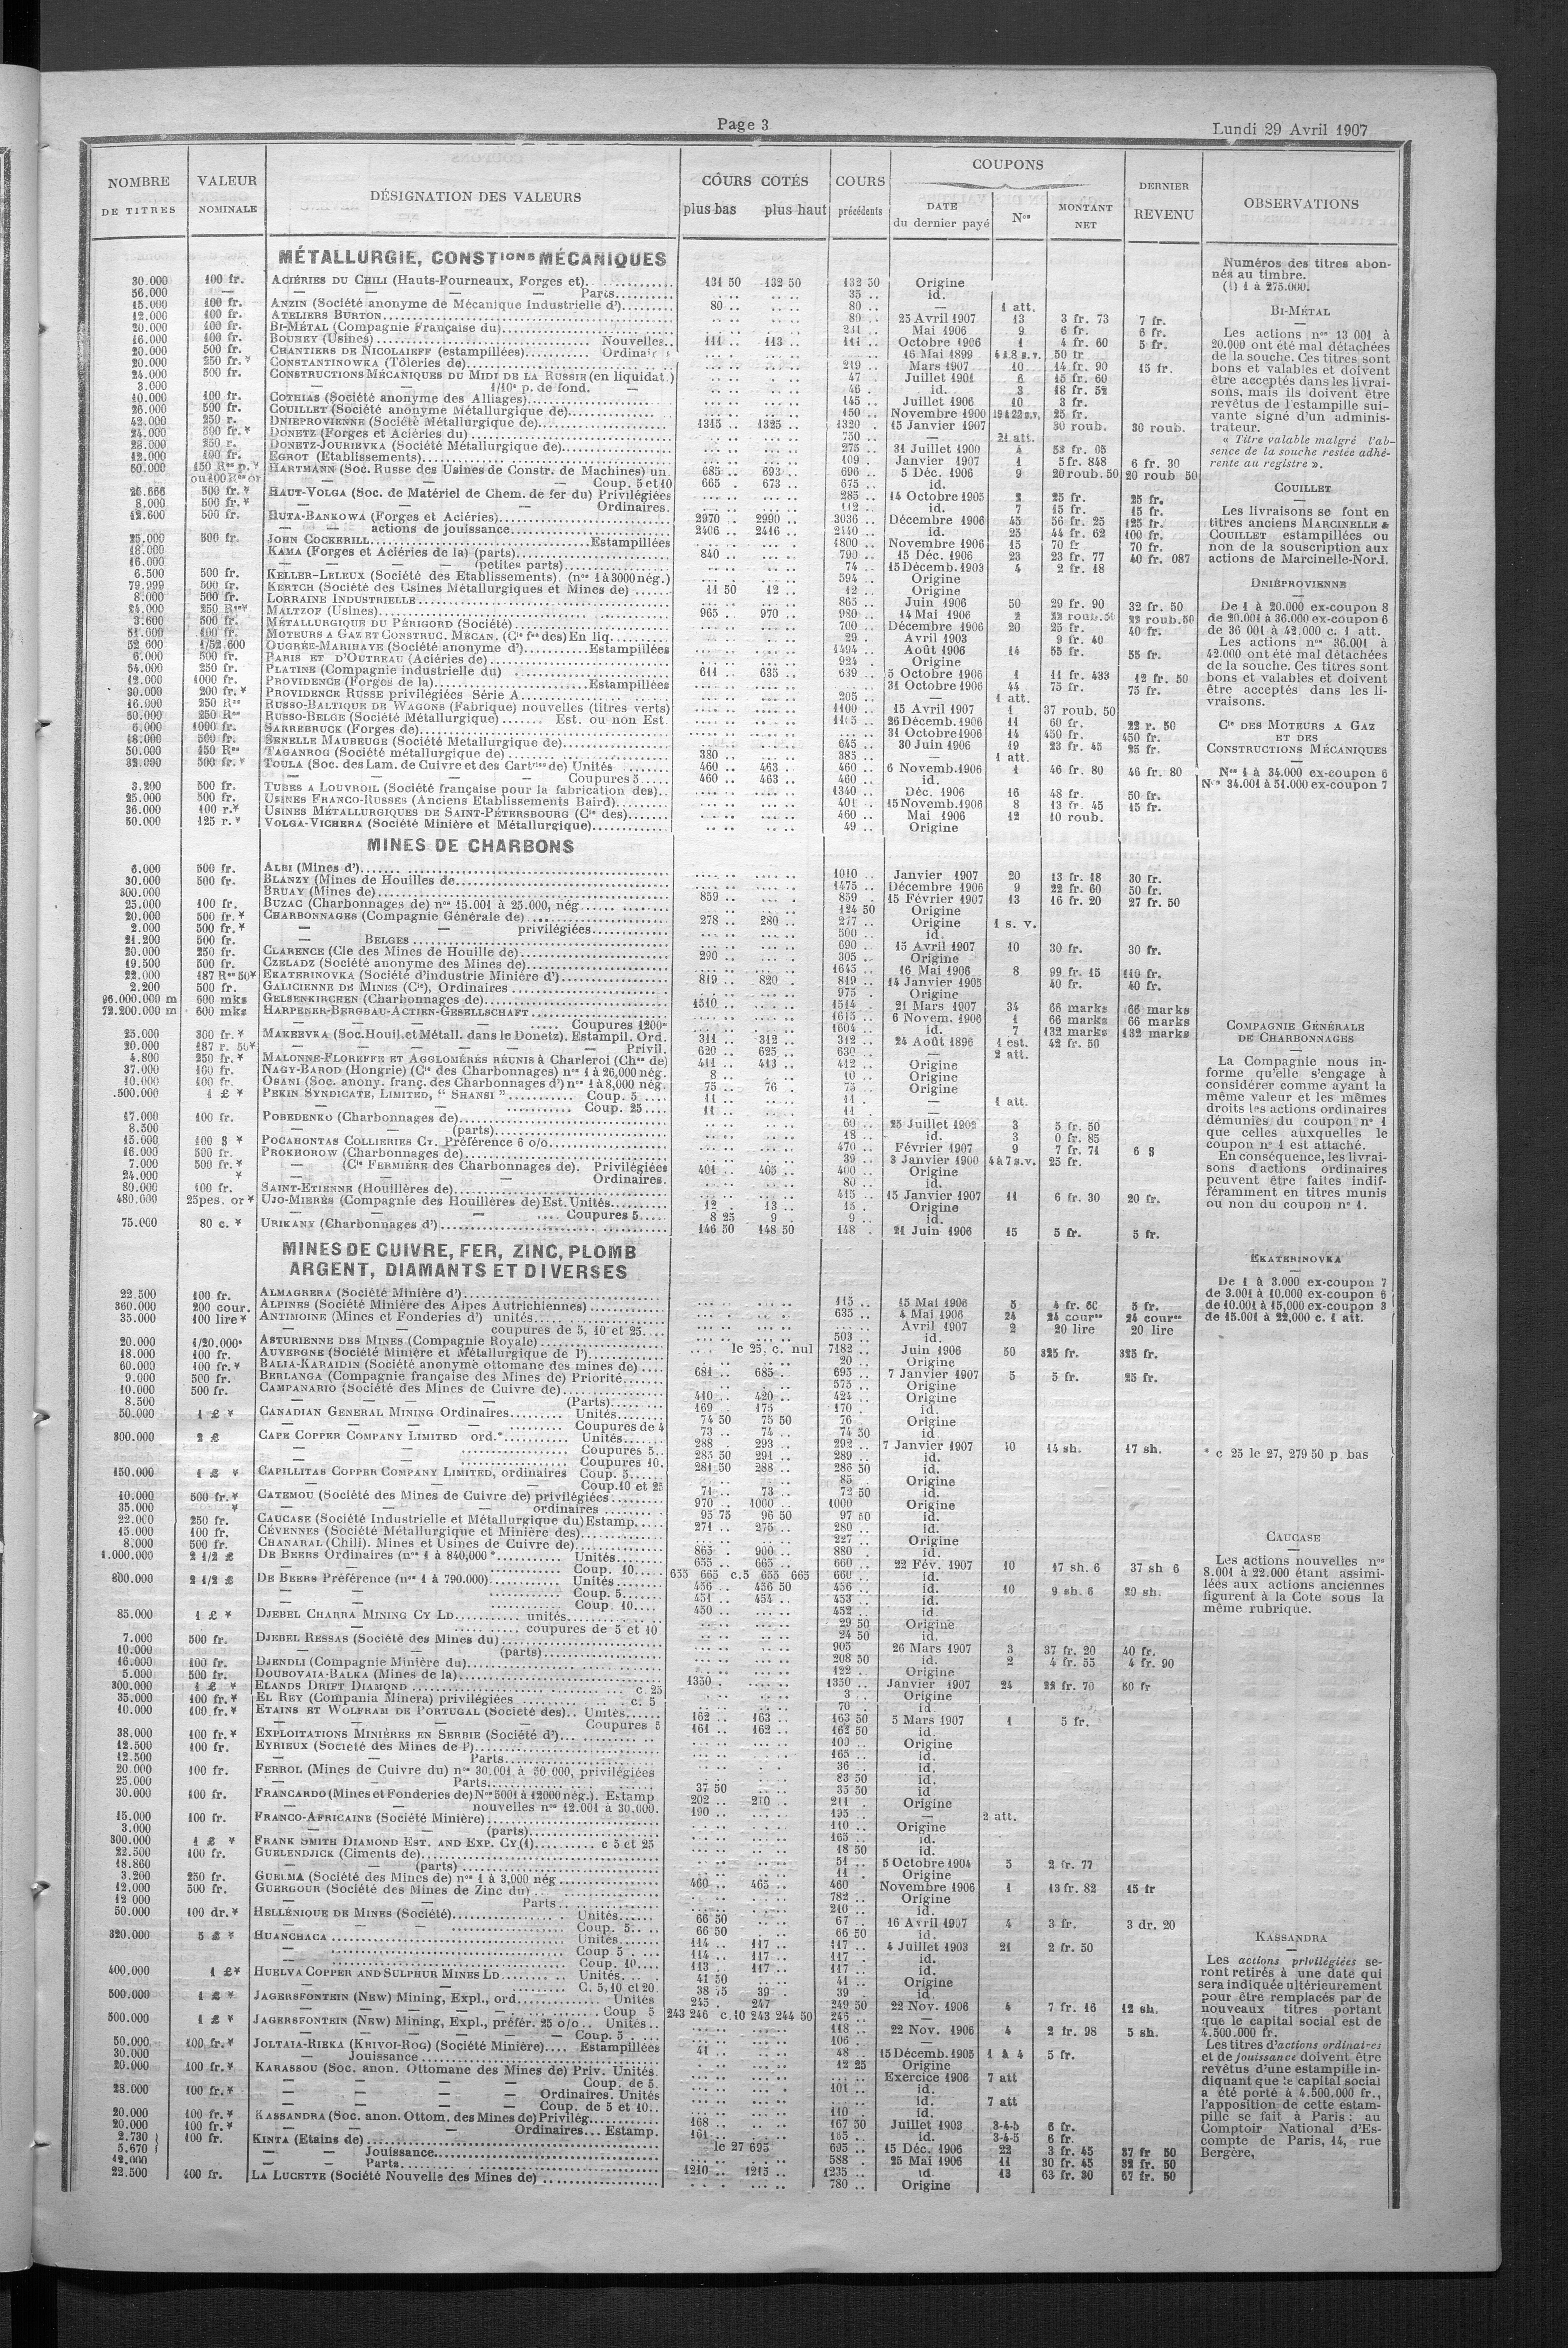 Page 3
Lundi 29 Avril 1907
NOMBRE DE TITRES | VALEUR NOMINALE | DÉSIGNATION DES VALEURS | COURS COTÉS plus bas plus haut | COURS précédents | COUPONS DATE du dernier payé | Nos | MONTANT NET | DERNIER REVENU | OBSERVATIONS
MÉTALLURGIE, CONSTIONS MÉCANIQUES
30.000 100 fr. ACIÉRIES DU CHILI (Hauts-Fourneaux, Forges et) 131 50 132 50 132 50 Origine
56.000 — — — Parts 35 .. id.
15.000 100 fr. ANZIN (Société anonyme de Mécanique Industrielle d') 80 .. 80 .. — 1 att.
12.000 100 fr. ATELIERS BURTON 80 .. 25 Avril 1907 13 3 fr. 73 7 fr.
20.000 100 fr. BI-MÉTAL (Compagnie Française du) Mai 1906 9 6 fr. 6 fr.
16.000 100 fr. BOUHEY (Usines) Nouvelles 111 .. 113 .. 111 .. Octobre 1906 1 4 fr. 60 5 fr.
20.000 500 fr. CHANTIERS DE NICOLAIEFF (estampillées) 16 Mai 1899 50 fr
20.000 250 fr. CONSTANTINOWKA (Tôleries de) 219 .. Mars 1907 10 14 fr. 90 15 fr.
24.000 500 fr. CONSTRUCTIONS MÉCANIQUES DU MIDI DE LA RUSSIE (en liquidat.) 47 Juillet 1901 6 15 fr. 60
3.000 — — 1/10e p. de fond. — 46 . id. 3 18 fr. 52
10.000 100 fr. COTHIAS (Société anonyme des Alliages) 145 .. Juillet 1906 10 3 fr.
26.000 500 fr. COUILLET (Société anonyme Métallurgique de) 150 .. Novembre 1900 19 à 22 s.v. 25 fr.
42.000 250 r. DNIEPROVIENNE (Société Métallurgique de) 1315 .. 1325 .. 1320 . 15 Janvier 1907 30 roub. 30 roub.
24.000 500 fr.* DONETZ (Forges et Aciéries du) 750 .. — 21 att.
28.000 250 r. DONETZ-JOURIEVKA (Société Métallurgique de) 275 .. 31 Juillet 1900 4 53 fr. 05
12.000 100 fr. EGROT (Etablissements) 109 .. Janvier 1907 1 5 fr. 848 6 fr. 30
60.000 150 Ros p.* HARTMANN (Soc. Russe des Usines de Constr. de Machines) un. 685 .. 693 .. 696 .. 5 Déc. 1906 9 20 roub. 50 20 roub 50
ou 400 Ros or — — — Coup. 5 et 10 665 . 673 .. 675 .. id.
26.666 500 fr.* HAUT-VOLGA (Soc. de Matériel de Chem. de fer du) Privilégiées 285 .. 14 Octobre 1905 2 25 fr. 25 fr.
8.000 500 fr.* — — — Ordinaires. 112 .. id. 7 15 fr. 15 fr.
12.600 500 fr. HUTA-BANKOWA (Forges et Aciéries) 2970 .. 2990 .. 3036 .. Décembre 1906 45 56 fr. 25 125 fr.
— — actions de jouissance 2406 .. 2416 .. id. 25 44 fr. 62 100 fr.
25.000 500 fr. JOHN COCKERILL Estampillées 1800 .. Novembre 1906 15 70 fr 70 fr.
18.000 KAMA (Forges et Aciéries de la) (parts) 840 .. 790 .. 15 Déc. 1906 23 23 fr. 77 40 fr. 087
16.000 — — — (petites parts) 74 .. 15 Décemb. 1903 4 2 fr. 18
6.500 500 fr. KELLER-LELEUX (Société des Etablissements) (nos 1 à 3000 nég.) 594 .. Origine
79.999 500 fr. KERTCH (Société des Usines Métallurgiques et Mines de) 11 50 12 .. 12 .. Origine
8.000 500 fr. LORRAINE INDUSTRIELLE 865 .. Juin 1906 50 29 fr. 90 32 fr. 50
24.000 250 Ros* MALTZOF (Usines) 965 .. 970 .. 980 .. 14 Mai 1906 2 22 roub. 50 22 roub. 50
3.600 500 fr. MÉTALLURGIQUE DU PÉRIGORD (Société) 700 .. Décembre 1906 20 25 fr. 40 fr.
51.000 100 fr. MOTEURS A GAZ ET CONSTRUC. MÉCAN. (Cie fse des) En liq. 29 . Avril 1903 9 fr. 40
52 600 1/52.600 OUGRÉE-MARIHAYE (Société anonyme d') Estampillées 1494 .. Août 1906 14 55 fr. 55 fr.
6.000 500 fr. PARIS ET D'OUTREAU (Aciéries de) 924 . Origine
54.000 250 fr. PLATINE (Compagnie industrielle du) 611 .. 635 .. 639 .. 5 Octobre 1906 1 11 fr. 433 12 fr. 50
12.000 1000 fr. PROVIDENCE (Forges de la) Estampillées 31 Octobre 1906 44 75 fr. 75 fr.
30.000 200 fr.* PROVIDENCE RUSSE privilégiées Série A 205 .. 1 att.
16.000 250 Ros RUSSO-BALTIQUE DE WAGONS (Fabrique) nouvelles (titres verts) 1100 .. 15 Avril 1907 1 37 roub. 50
60.000 250 Ros RUSSO-BELGE (Société Métallurgique) Est. ou non Est. 1105 .. 26 Décemb. 1906 11 60 fr. 22 r. 50
6.000 1000 fr. SARREBRUCK (Forges de) 31 Octobre 1906 14 450 fr. 450 fr.
18.000 500 fr. SENELLE MAUBEUGE (Société Metallurgique de) 645 .. 30 Juin 1906 19 23 fr. 45 25 fr.
50.000 150 Ros TAGANROG (Société métallurgique de) 380 .. 385 .. — 1 att.
32.000 500 fr.* TOULA (Soc. des Lam. de Cuivre et des Cartries de) Unités 460 .. 463 .. 460 .. 6 Novemb. 1906 1 46 fr. 80 46 fr. 80
— — — — Coupures 5 460 .. 463 .. 460 .. id.
3.200 500 fr. TUBES A LOUVROIL (Société française pour la fabrication des) 1340 .. Déc. 1906 16 48 fr. 50 fr.
25.000 500 fr. USINES FRANCO-RUSSES (Anciens Etablissements Baird) 401 .. 15 Novemb. 1906 8 13 fr. 45 15 fr.
36.000 100 r.* USINES MÉTALLURGIQUES DE SAINT-PÉTERSBOURG (Cie des) 460 .. Mai 1906 12 10 roub.
50.000 125 r.* VOLGA-VICHERA (Société Minière et Métallurgique) 49 .. Origine
MINES DE CHARBONS
6.000 500 fr. ALBI (Mines d') 1010 .. Janvier 1907 20 13 fr. 18 30 fr.
30.000 500 fr. BLANZY (Mines de Houilles de 1475 .. Décembre 1906 9 22 fr. 60 50 fr.
300.000 BRUAY (Mines de) 859 .. 859 . 15 Février 1907 13 16 fr. 20 27 fr. 50
25.000 100 fr. BUZAC (Charbonnages de) nos 15.001 à 25.000, nég 124 50 Origine
20.000 500 fr.* CHARBONNAGES (Compagnie Générale de) 278 .. 280 .. 277 .. Origine 1 s. v.
2.000 500 fr.* — — privilégiées 500 .. id.
21.200 500 fr. — BELGES 690 .. 15 Avril 1907 10 30 fr. 30 fr.
20.000 250 fr. CLARENCE (Cie des Mines de Houille de) 290 .. 305 .. Origine
19.500 500 fr. CZELADZ (Société anonyme des Mines de) 1645 .. 16 Mai 1906 8 99 fr. 15 110 fr.
22.000 187 Ros 50* EKATERINOVKA (Société d'industrie Minière d') 819 .. 820 . 819 .. 14 Janvier 1905 40 fr. 40 fr.
2.200 500 fr. GALICIENNE DE MINES (Cie), Ordinaires 975 . Origine
96.000.000 m 600 mks GELSENKIRCHEN (Charbonnages de) 1510 .. 1514 . 21 Mars 1907 34 66 marks 66 marks
72.200.000 m 600 mks HARPENER-BERGBAU-ACTIEN-GESELLSCHAFT 1615 .. 6 Novem. 1906 1 66 marks 66 marks
— — — Coupures 1200m 1604 .. id. 7 132 marks 132 marks
25.000 300 fr.* MAKEEVKA (Soc. Houil. et Métall. dans le Donetz). Estampil. Ord. 311 .. 312 .. 312 .. 24 Août 1896 1 est. 42 fr. 50
20.000 187 r. 50* — — — Privil. 620 .. 625 .. 630 .. — 2 att.
4.800 250 fr.* MALONNE-FLOREFFE ET AGGLOMÉRÉS RÉUNIS à Charleroi (Chges de) 411 .. 413 .. 412 .. Origine
37.000 100 fr. NAGY-BAROD (Hongrie) (Cie des Charbonnages) nos 1 à 26,000 nég. 8 .. 10 .. Origine
10.000 100 fr. OBANI (Soc. anony. franç. des Charbonnages d') nos 1 à 8,000 nég. 75 .. 76 . 75 .. Origine
.500.000 1 £ * PEKIN SYNDICATE, LIMITED, “ SHANSI ” Coup. 5 11 .. 11 . — 1 att.
— — Coup. 25 11 .. 11 . —
17.000 100 fr. POBEDENKO (Charbonnages de) 60 .. 25 Juillet 1902 3 5 fr. 50
8.500 — — (parts) 18 .. id. 3 0 fr. 85
15.000 100 $ * POCAHONTAS COLLIERIES CY. Préférence 6 o/o 470 .. Février 1907 9 7 fr. 71 6 $
16.000 500 fr. PROKHOROW (Charbonnages de) 39 .. 3 Janvier 1900 4 à 7 s.v. 25 fr.
7.000 500 fr.* — (Cie FERMIÈRE des Charbonnages de). Privilégiées 401 .. 405 .. 400 .. Origine
24.000 * — — — Ordinaires. 80 .. id.
80.000 100 fr. SAINT-ETIENNE (Houillères de) 415 .. 15 Janvier 1907 11 6 fr. 30 20 fr.
480.000 25 pes. or * UJO-MIERÈS (Compagnie des Houillères de) Est. Unités 12 . 13 .. 13 . Origine
— — — Coupures 5 8 25 9 . 9 .. id.
75.000 80 c.* URIKANY (Charbonnages d') 146 50 148 50 148 . 21 Juin 1906 15 5 fr. 5 fr.
MINES DE CUIVRE, FER, ZINC, PLOMB
ARGENT, DIAMANTS ET DIVERSES
22.500 100 fr. ALMAGRERA (Société Minière d') 115 .. 15 Mai 1906 5 4 fr. 60 5 fr.
360.000 200 cour. ALPINES (Société Minière des Alpes Autrichiennes) 635 .. 4 Mai 1906 24 24 courses 24 courses
35.000 100 lire* ANTIMOINE (Mines et Fonderies d') unités Avril 1907 2 20 lire 20 lire
— — coupures de 5, 10 et 25 503 .. id.
20.000 1/20.000e ASTURIENNE DES MINES (Compagnie Royale) le 25. c. nul 7182 .. Juin 1906 50 325 fr. 325 fr.
18.000 100 fr. AUVERGNE (Société Minière et Métallurgique de l') 20 .. Origine
60.000 100 fr.* BALIA-KARAIDIN (Société anonyme ottomane des mines de) 681 .. 685 .. 695 .. 7 Janvier 1907 5 5 fr. 25 fr.
9.000 500 fr. BERLANGA (Compagnie française des Mines de) Priorité 575 .. Origine
10.000 500 fr. CAMPANARIO (Société des Mines de Cuivre de) 410 .. 420 .. 424 .. Origine
8.500 — — — (Parts) 169 . 175 170 . id.
50.000 1 £ * CANADIAN GENERAL MINING Ordinaires Unités 74 50 75 50 76 . Origine
— — — Coupures de 4 73 .. 74 .. 74 50 id
300.000 2 £ CAPE COPPER COMPANY LIMITED ord.* Unités 288 293 .. 292 .. 7 Janvier 1907 10 14 sh. 17 sh.
— — Coupures 5 285 50 291 .. 289 .. id.
— — Coupures 10. 281 50 288 .. 286 50 id.
150.000 1 £ * CAPILLITAS COPPER COMPANY LIMITED, ordinaires Coup. 5 85 . Origine
— — — Coup. 10 et 25 71 .. 73 .. 72 50 id.
10.000 500 fr.* CATEMOU (Société des Mines de Cuivre de) privilégiées 970 .. 1000 .. 1000 Origine
35.000 * — — — ordinaires 95 75 96 50 97 50 id.
22.000 250 fr. CAUCASE (Société Industrielle et Métallurgique du) Estamp. 271 .. 275 .. 280 .. id.
15.000 100 fr. CÉVENNES (Société Métallurgique et Minière des) 227 .. Origine
8.000 500 fr. CHANARAL (Chili). Mines et Usines de Cuivre de) 865 .. 900 .. 880 . id.
1.000.000 2 1/2 £ DE BEERS Ordinaires (nos 1 à 840,000 * Unités 655 .. 665 .. 660 .. 22 Fév. 1907 10 17 sh. 6 37 sh 6
— — Coup. 10 655 665 c.5 655 665 660 .. id.
800.000 2 1/2 £ DE BEERS Préférence (nos 1 à 790.000) Unités 456 .. 456 50 456 .. id. 10 9 sh. 6 20 sh.
— — Coup. 5 451 .. 454 .. 453 .. id.
— — Coup. 10 450 .. 452 .. id.
85.000 1 £ * DJEBEL CHARRA MINING CY LD unités 29 50 Origine
— — coupures de 5 et 10 24 50 id.
7.000 500 fr. DJEBEL RESSAS (Société des Mines du) 905 26 Mars 1907 3 37 fr. 20 40 fr.
10.000 — — (parts) 208 50 id. 2 4 fr. 55 4 fr. 90
16.000 100 fr. DJENDLI (Compagnie Minière du) 122 . Origine
5.000 500 fr. DOUBOVAIA-BALKA (Mines de la) 1350 . 1350 .. Janvier 1907 24 22 fr. 70 50 fr
300.000 1 £ * ELANDS DRIFT DIAMOND c. 25 3 . Origine
35.000 100 fr.* EL REY (Compania Minera) privilégiées c. 5 70 . id.
10.000 100 fr.* ETAINS ET WOLFRAM DE PORTUGAL (Société des) Unités 162 .. 163 .. 163 50 5 Mars 1907 1 5 fr.
— — — Coupures 5 161 .. 162 .. 162 50 id.
38.000 100 fr.* EXPLOITATIONS MINIÈRES EN SERBIE (Société d') 100 .. Origine
12.500 100 fr. EYRIEUX (Société des Mines de l') 165 .. id.
12.500 — — Parts 36 . id.
20 000 100 fr. FERROL (Mines de Cuivre du) nos 30.001 à 50 000, privilégiées 83 50 id.
25.000 — — Parts 37 50 35 50 id
30.000 100 fr. FRANCARDO (Mines et Fonderies de) Nos 5001 à 12000 nég.). Estamp 202 .. 210 . 211 . Origine
— — nouvelles nos 12.001 à 30.000. 190 .. 195 .. — 2 att.
15.000 100 fr. FRANCO-AFRICAINE (Société Minière) 110 .. Origine
3.000 — — (parts) 165 .. id.
300.000 1 £ * FRANK SMITH DIAMOND EST. AND EXP. CY (1) c 5 et 25 18 50 id.
22.500 100 fr. GUELENDJICK (Ciments de) 51 .. 5 Octobre 1904 5 2 fr. 77
18.860 — — (parts) 11 . Origine
3.200 250 fr. GUELMA (Société des Mines de) nos 1 à 3,000 nég 460 .. 465 .. 460 Novembre 1906 1 13 fr. 82 15 fr
12.000 500 fr. GUERGOUR (Société des Mines de Zinc du) 782 .. Origine
12 000 — — Parts 210 .. id.
50.000 100 dr.* HELLÉNIQUE DE MINES (Société) Unités 66 50 67 .. 16 Avril 1907 4 3 fr. 3 dr. 20
— — Coup. 5 66 50 66 50 id.
320.000 5 £ * HUANCHACA Unités 114 .. 117 .. 117 .. 4 Juillet 1903 21 2 fr. 50
— Coup 5 114 .. 117 .. 117 . id.
— Coup. 10 113 .. 117 .. 117 .. id.
400.000 1 £* HUELVA COPPER AND SULPHUR MINES LD Unités 41 50 41 .. Origine
— — C. 5, 10 et 20 38 75 39 . 39 . id.
500.000 1 £ * JAGERSFONTEIN (NEW) Mining, Expl., ord Unités 245 . 247 249 50 22 Nov. 1906 4 7 fr. 16 12 sh.
— — — Coup 5 243 246 c.10 243 244 50 246 .. —
500.000 1 £ * JAGERSFONTEIN (NEW) Mining, Expl., préfér. 25 o/o Unités 118 .. 22 Nov. 1906 4 2 fr. 98 5 sh.
— — — Coup. 5 106 . —
50.000 100 fr.* JOLTAIA-RIEKA (KRIVOI-ROG) (Société Minière) Estampillées 41 .. 48 . 15 Décemb. 1905 1 à 4 5 fr.
30.000 — Jouissance 12 25 Origine
20.000 100 fr.* KARASSOU (Soc. anon. Ottomane des Mines de) Priv. Unités. Exercice 1906 7 att
— — — Coup. de 5. 101 .. id.
23.000 100 fr.* — — — Ordinaires. Unités id. 7 att
— — — Coup. de 5 et 10 110 . id.
20.000 100 fr.* KASSANDRA (Soc. anon. Ottom. des Mines de) Privilég. 168 .. 167 50 Juillet 1903 3-4-5 6 fr.
20.000 100 fr.* — — — Ordinaires... Estamp. 161 .. 165 .. id. 3-4-5 6 fr.
2.730 100 fr. KINTA (Etains de) le 27 695 695 .. 15 Déc. 1906 22 3 fr. 45 37 fr 50
5.670 — — Jouissance 588 . 25 Mai 1906 11 30 fr. 45 32 fr. 50
12.000 — — Parts 1210 .. 1215 .. 1235 .. id. 13 63 fr. 30 67 fr. 50
22.500 400 fr. LA LUCETTE (Société Nouvelle des Mines de) 780 .. Origine
Numéros des titres abon-
nés au timbre.
(1) 1 à 275.000.
BI-MÉTAL
Les actions nos 13 001 à
20.000 ont été mal détachées
de la souche. Ces titres sont
bons et valables et doivent
être acceptés dans les livrai-
sons, mais ils doivent être
revêtus de l'estampille sui-
vante signé d'un adminis-
trateur.
« Titre valable malgré l'ab-
sence de la souche restée adhé-
rente au registre ».
COUILLET
Les livraisons se font en
titres anciens MARCINELLE &
COUILLET estampillées ou
non de la souscription aux
actions de Marcinelle-Nord.
DNIÉPROVIENNE
De 1 à 20.000 ex-coupon 8
de 20.001 à 36.000 ex-coupon 6
de 36 001 à 42.000 c. 1 att.
Les actions nos 36.001 à
42.000 ont été mal détachées
de la souche. Ces titres sont
bons et valables et doivent
être acceptés dans les li-
vraisons.
Cie DES MOTEURS A GAZ
ET DES
CONSTRUCTIONS MÉCANIQUES
Nos 1 à 34.000 ex-coupon 6
Nos 34.001 à 51.000 ex-coupon 7
COMPAGNIE GÉNÉRALE
DE CHARBONNAGES
La Compagnie nous in-
forme qu'elle s'engage à
considérer comme ayant la
même valeur et les mêmes
droits les actions ordinaires
démunies du coupon no 1
que celles auxquelles le
coupon no 1 est attaché.
En conséquence, les livrai-
sons d'actions ordinaires
peuvent être faites indif-
féramment en titres munis
ou non du coupon no 1.
EKATERINOVKA
De 1 à 3.000 ex-coupon 7
de 3.001 à 10.000 ex-coupon 6
de 10.001 à 15,000 ex-coupon 3
de 15.001 à 22,000 c. 1 att.
* c 25 le 27, 279 50 p bas
CAUCASE
Les actions nouvelles nos
8.001 à 22.000 étant assimi-
lées aux actions anciennes
figurent à la Cote sous la
même rubrique.
KASSANDRA
Les actions privilégiées se-
ront retirés à une date qui
sera indiquée ultérieurement
pour être remplacés par de
nouveaux titres portant
que le capital social est de
4.500.000 fr.
Les titres d'actions ordinaires
et de jouissance doivent être
revêtus d'une estampille in-
diquant que le capital social
a été porté à 4.500.000 fr.,
l'apposition de cette estam-
pille se fait à Paris : au
Comptoir National d'Es-
compte de Paris, 14, rue
Bergère,